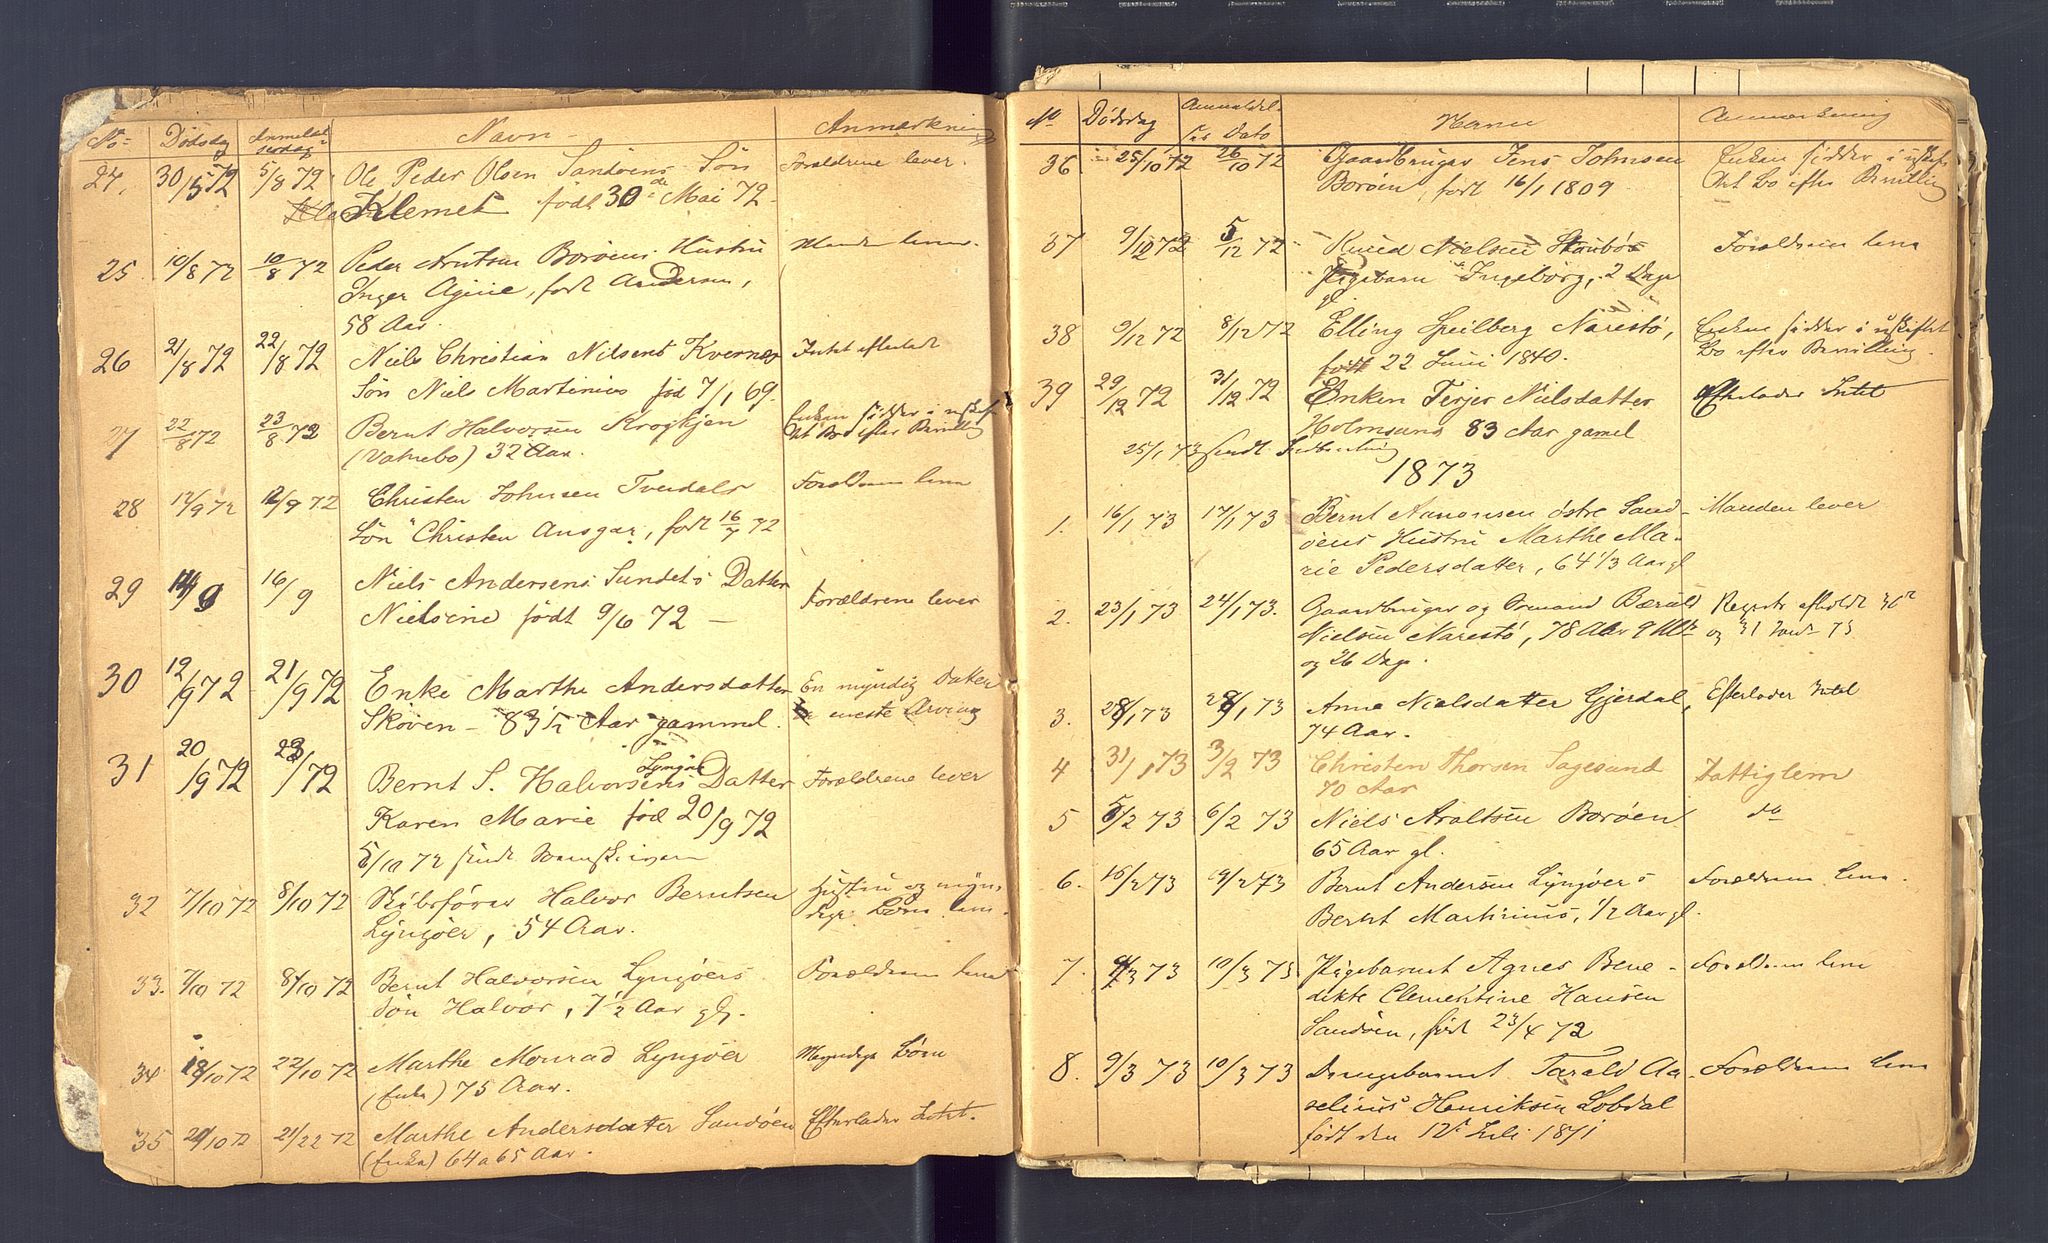 No Dødsdag Anmeldelsesdag Navn Anmærkning
24. 30/5 72 5/8 72 Ole Peder Olsen Sandøens Søn Forældrene lever.
Klemet født 30de Mai 72
25 10/8 72 10/8 72 Peder Arntsen Borøens Hustru Manden lever.
Inger Agine, født Andersen,
58 Aar.
26 21/8 72 22/8 72 Niels Christian Nilsens Kvernes Intet efterladt
Søn Niels Martinius fød 7/1 69.
27 22/8 72 23/8 72 Bernt Halvorsen Krogkjen Enken sidder i uskif-
(Valnebo) 32 Aar. tet Bo efter Bevilling
28 12/9 72 12/9 72 Christen Johnsen Tvedals Forældrene lever
Søn Christen Ansgar, født 16/7 72
29 14/9 16/9 Niels Andersens Sundets Datter
Nielsine født 9/6 72 — Forældrene lever
30 19/9 72 21/9 72 Enke Marthe Andersdatter En myndig Datter
Skøven – 83½ Aar gammel. eneste Arving
31 20/9 72 23/9 72 Bernt S. Halvorsens Lyngør Datter Forældrene lever
Karen Marie fød 20/9 72
5/10 72 sendt
32 7/10 72 8/10 72 Skibsfører Halvor Berntsen Hustru og myn-
Lyngøer, 54 Aar. dige Børn lever
33. 7/10 72 8/10 72 Bernt Halvorsen Lyngøers Forældrene lever
Søn Halvor, 1½ Aar gl.
34 18/10 72 22/10 72 Marthe Monrad Lyngøer Myndige Børn
(Enke) 75 Aar.
35 20/10 72 21/22 72 Marthe Andersdatter Sandøen Efterlader Intet.
(Enke) 64 a 65 Aar.
No Dødsdag Anmeldelses Dato Navn Anmærkning
36 25/10 72 26/10 72 Gaardbruger Jens Johnsen Enken sidder i uskif-
Borøen, født 16/1 1809 tet Bo efter Bevilling
37 9/12 72 5/12 72 Knud Nielsen Staubøs Forældrene lever
Pigebarn Ingeborg, 2 Dage
gl.
38 9/12 72 8/12 72 Elling Speilberg Narestø, Enken sidder i uskiftet
født 22 Juni 1840. Bo efter Bevilling.
39 29/12 72 31/12 72 Enken Terjer Nielsdatter Efterlader Intet
Holmsund 83 Aar gamel
25/1 73 sendt Indberetning
1873
1. 16/1 73 17/1 73 Bernt Aanonsen østre Sand- Manden lever
øens Hustru Marthe Ma-
rie Pedersdatter, 64 1/3 Aar gl
2. 23/1 73 24/1 73. Gaardbruger og Ormand Bærul Registr. afholdt 30te
Nielsen Narestø, 78 Aar 9 Mdr og 31 Janr 73
og 26 Dage.
3. 28/1 73 28/1 73 Anne Nielsdatter Gjerdal, Efterlader Intet
74 Aar.
4 31/1 73 3/2 73 Christen Thorsen Sagesund Fattiglem
70 Aar
5 5/2 73 6/2 73 Niels Araltsen Borøen do
65 Aar gl.
6. 16/2 73 19/2 73 Bernt Andersen Lyngøers Forældrene lever.
Bernt Martinius, 1/2 Aar gl.
7. 9/3 73 10/3 73 Pigebarnet Agnes Bene- Forældrene lever
dikte Clementine Hansen
Sandøen, født 23/4 72
8. 9/3 73 10/3 73 Drengebarnet Tarald Aa- Forældrene lever
selius Henriksen Lobdal
født den 12te Juli 1871